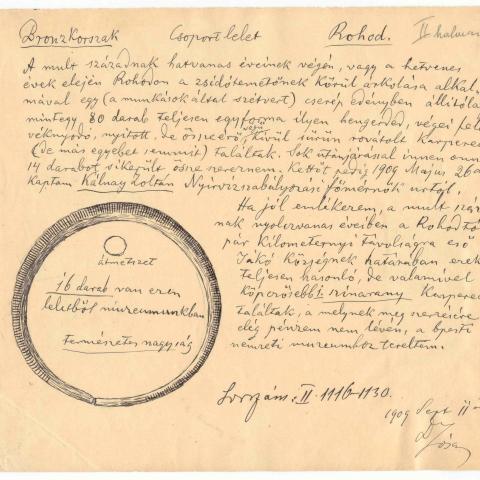 Bronzkorszak Csoport lelet Rohod. II halom
A mult századnak hatvanas éveinek végén, vagy a hetvenes
évek elején Rohodon a zsidótemetőnek körül árkolása alkal
mával egy (a munkások által szétvert) cserép edényben állítólag
mintegy 80 darab teljesen egyforma ilyen hengerded, végei felé
véknyodó, nyitott, de összeérő végű kívül sűrűn rovátolt Karperecet
(de más egyebet semmit) találtak. Sok utánjárással innen onnan
14 darabot sikerült össze szereznem. Kettőt pedig 1909 Május 26 án
kaptam Kálnay Zoltán Nyirvizszabályozási főmérnök úrtól.
Ha jól emlékszem, a mult száza
nak nyolczvanas éveiben a Rohodtól
pár kilometernyi távolságra eső
Jákó községnek határában ezek
teljesen hasonló, de valamivel
köpczösebb szinarany Karperec
találtak, a melynek meg szerzésére
elég pénzem nem lévén, a bpesti
nemzeti múzeumhoz tereltem.
átmetszet
16 darab van ezen
leletből múzeumunkban
természetes nagyság
Sorszám: II. 1116-1130.
1909 Sept 11
Dr Jósa